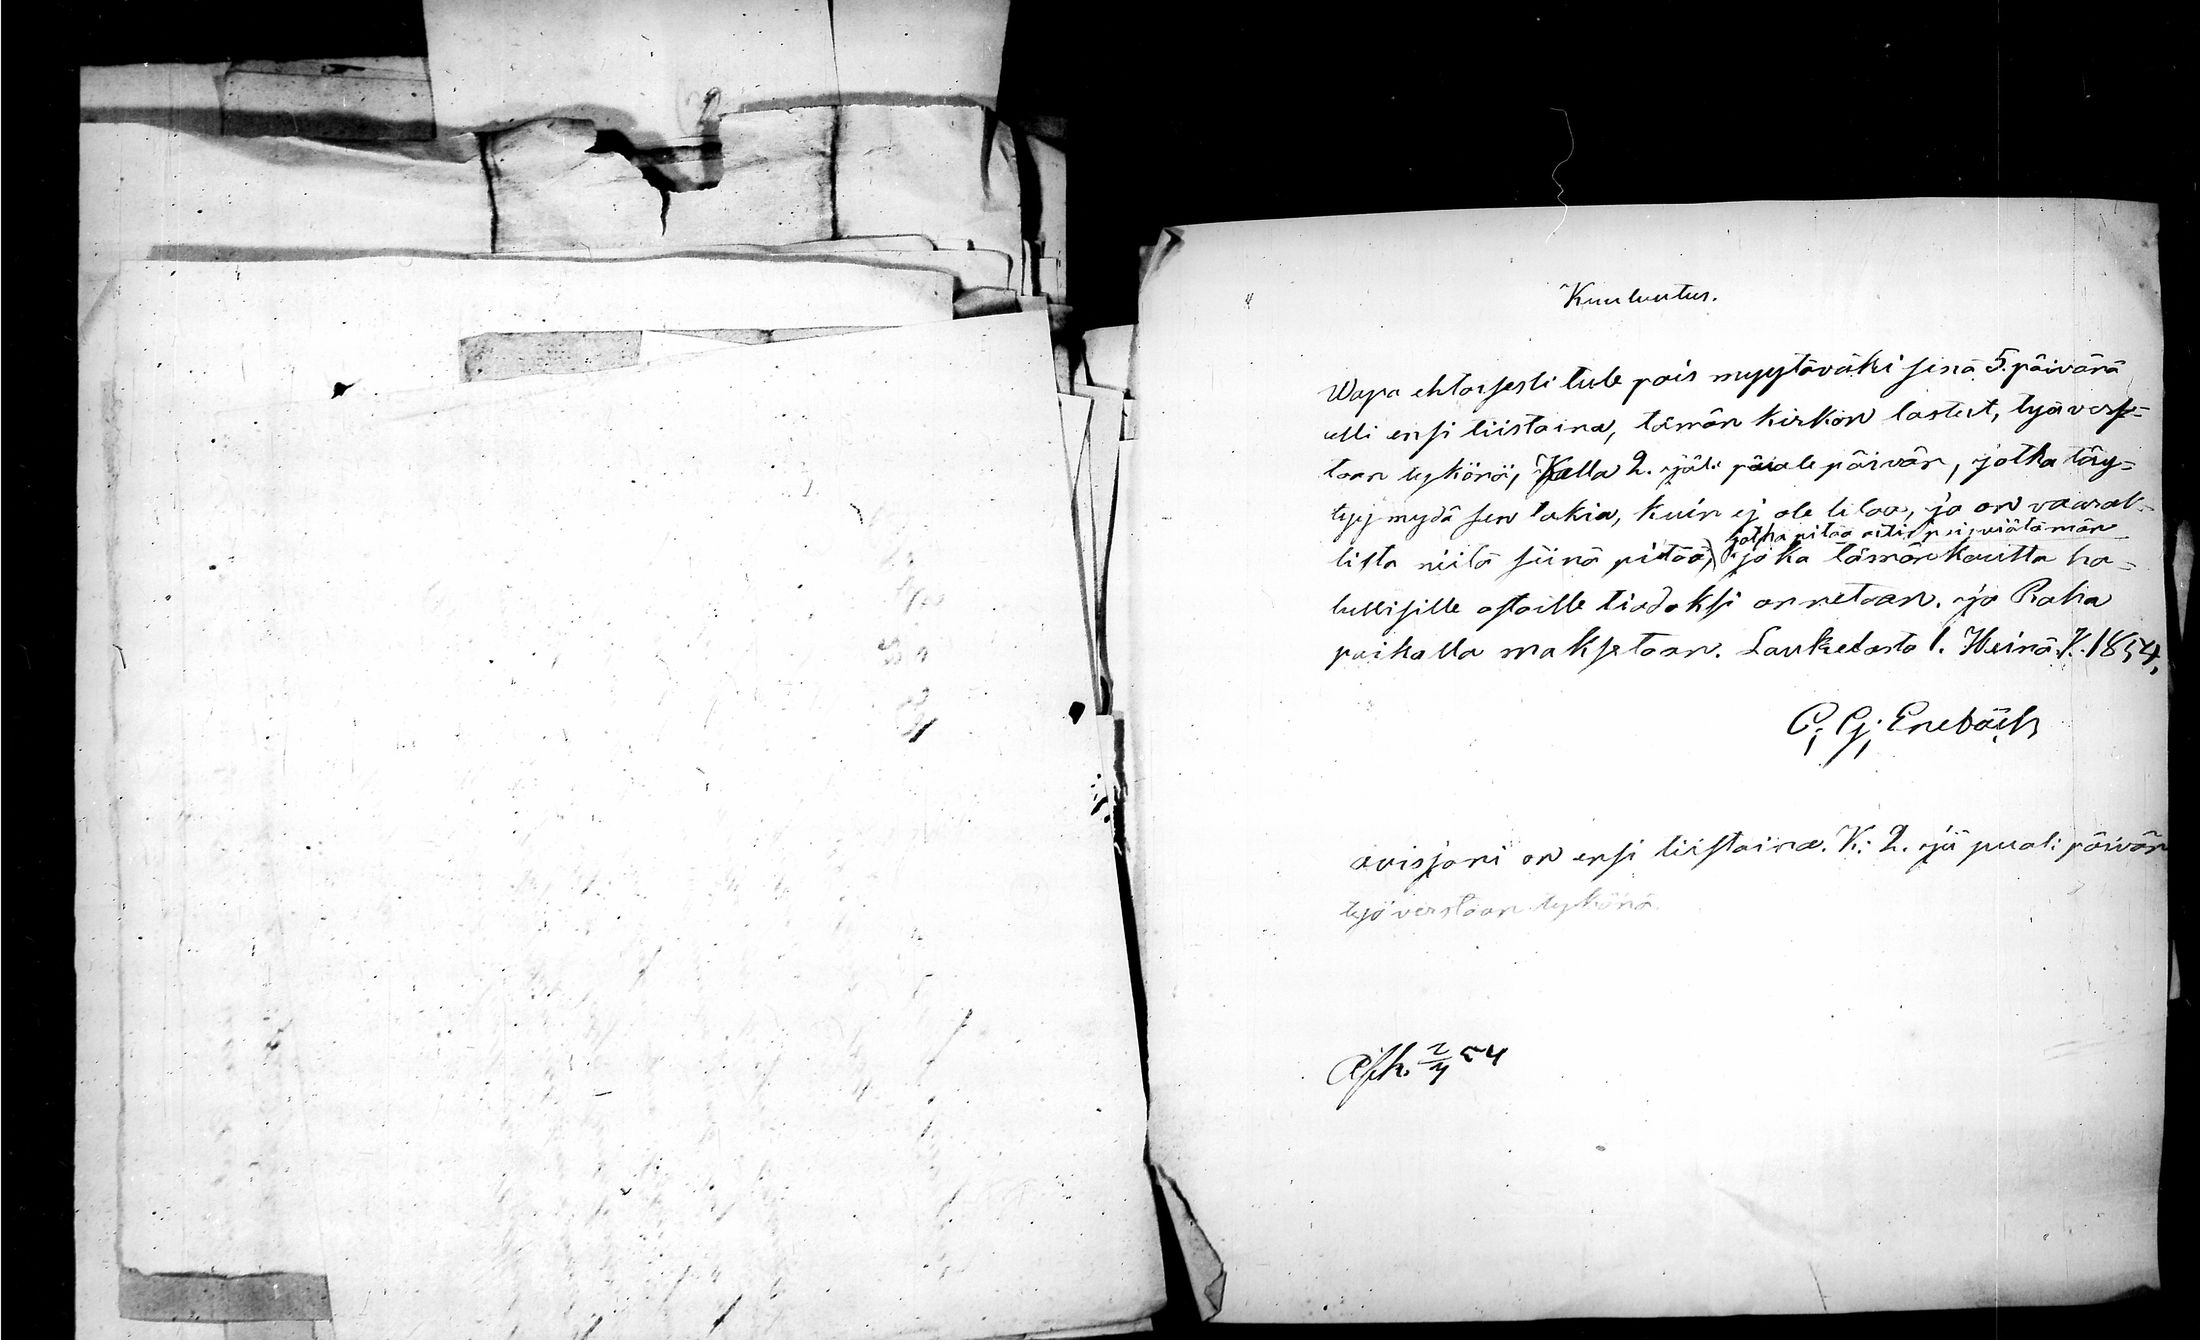 Kuuluutus.
Wapa ehtoisesti tule pois myytäväksi sinä 5. päivänä
elli ensi tiistaina, tämän kirkon lasteet, työvers-
taan tykönä, Kella 2. jäli puale päivän, jotka täy-
tyy mydä sen takia, kuin ej ole tilaa, ja on vaaral-
jotka pitää
lista niitä siinä pitää, joka tämän kautta ha-
lullisille ostaille tiedoksi annetaan. ja Raha
paikalla maksetaan. Lauketasta 1. Heinä. K. 1854,
C; G; Enebäck
auisjoni on ensi tiistaina. K: 2. jä puali päivän
työ verstaan tykönä.
2/7 54